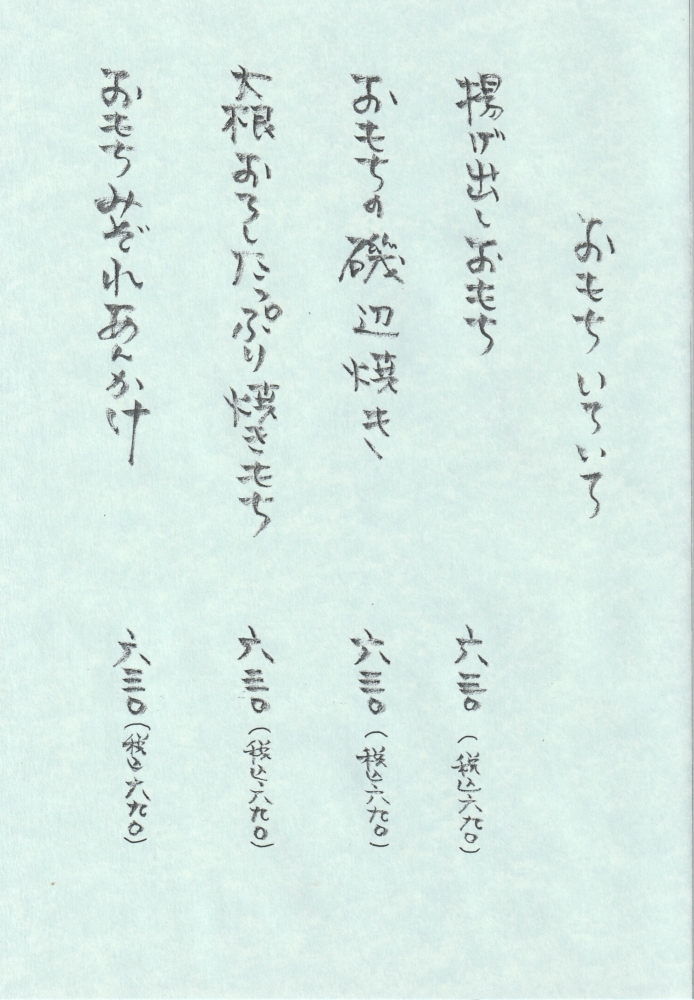 おもちいろいろ
揚げ出しおもち 六三〇（税込六九〇）
おもちの磯辺焼き 六三〇（税込六九〇）
大根おろしたっぷり焼きもち 六三〇（税込六九〇）
おもちみぞれあんかけ 六三〇（税込六九〇）